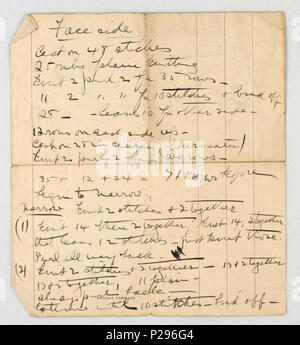 Face side
Cast on 48 stiches
25 ribs plain knitting
Knit 2 purl 2 for 35 rows
" 2 " " for 10 stitches + bind off
25 — leaves 10 for other side —
12 rows on each side up —
Cast on 25 in center
Knit 2 purl 2 rows
35 + 12 + 24 = 71 rows before
begin to narrow
narrow Knit 2 stitches + 2 together
(1) Knit 14 then 2 together, Knit 14, 2 together
that leaves 12 stitches just knit those
Purl all way back.
(2) Knit 2 stitches + 2 together — 13 + 2 together
13 + 2 together, 11 plain —
always purl back
until 10 stitches — bind off —
alamy
P296G4